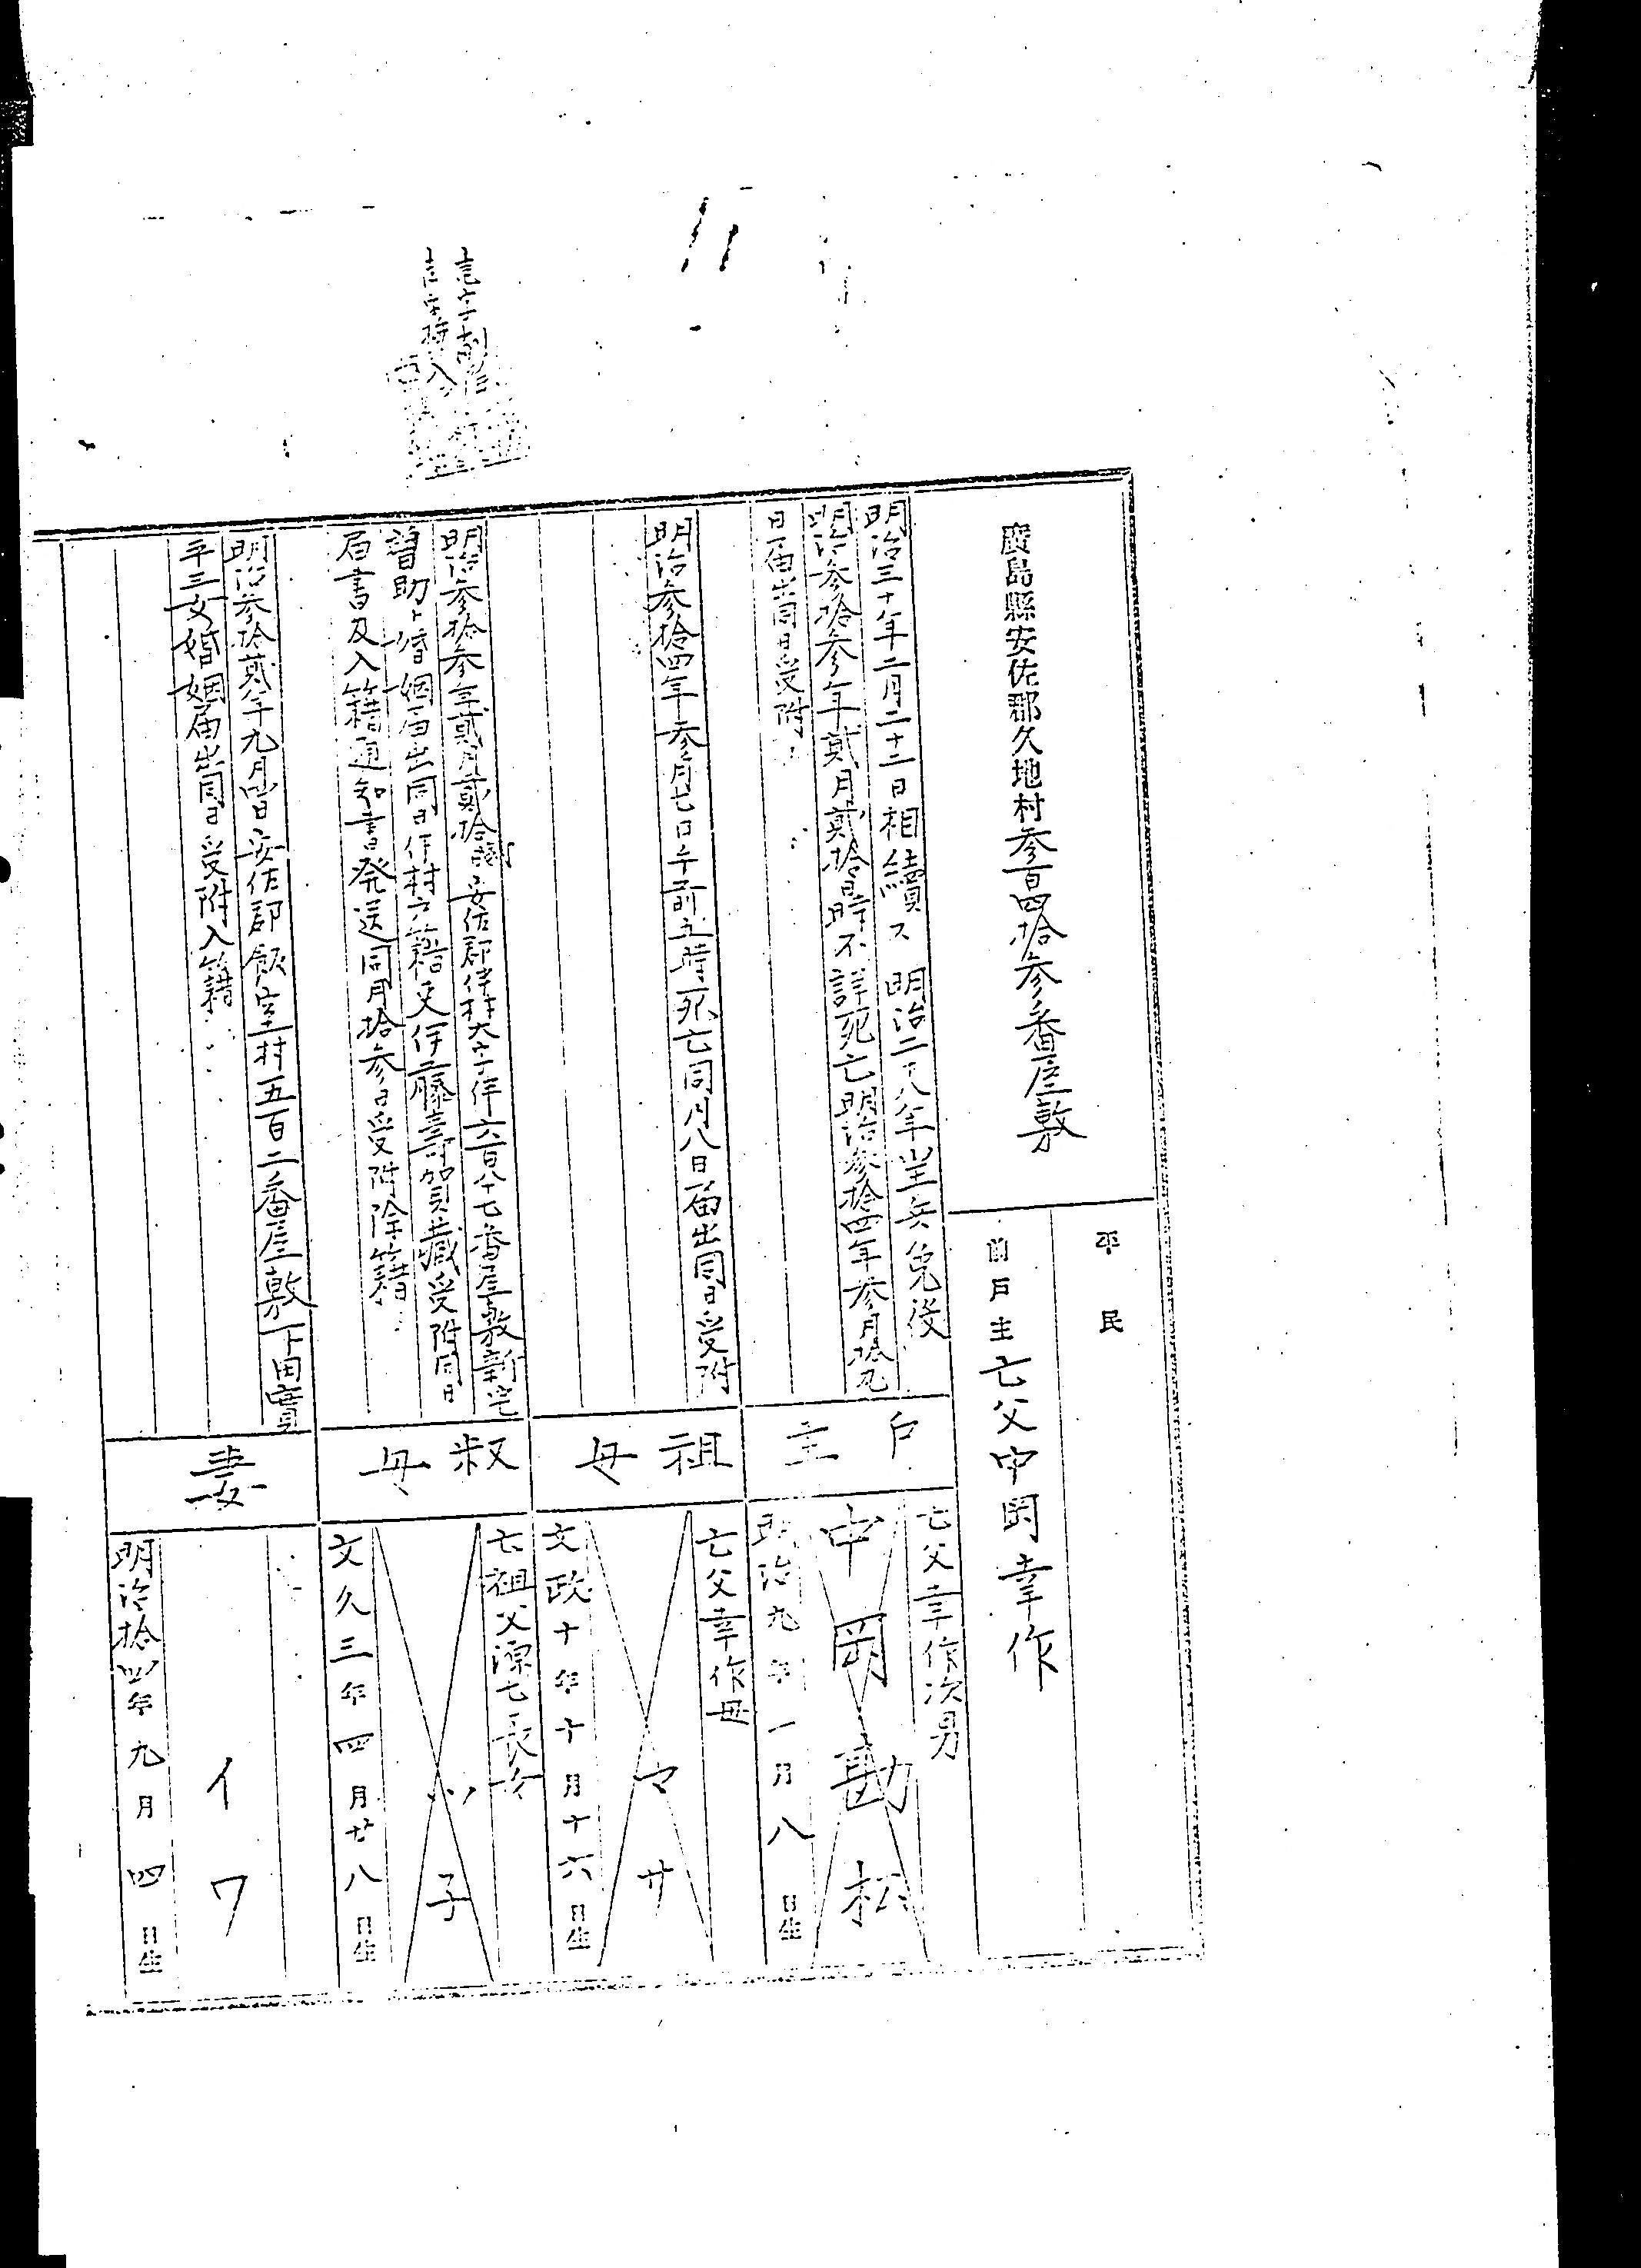 廣島縣安佐郡久地村参百四拾参番屋敷
平民
前戸主亡父中岡幸作
明治三十年二月二十二日相續ス 明治二十八年 兵免役
明治参拾参年貳月貳拾日時不詳死亡明治参拾四年参月拾九
日届出同日受附
戸主
亡父幸作次男
中岡勘松
明治九年一月八日生
明治参拾四年参月七日午前五時死亡同月八日届出同日受附
祖母
亡父幸作母
マサ
文政十年十月十六日生
明治参拾参年貳月貳拾 安佐郡伴村大字伴六百八十七番屋敷新宅
助ト婚姻届出同日伴村戸籍吏伊藤壽賀藏受附同日
届書及入籍通知書発送同月拾参日受附除籍
叔母
亡祖父源七長女
子
文久三年四月廿八日生
明治参拾貳年九月四日安佐郡飯室村五百二番屋敷下田實
平三女婚姻届出同日受附入籍
妻
イワ
明治拾四年九月四日生